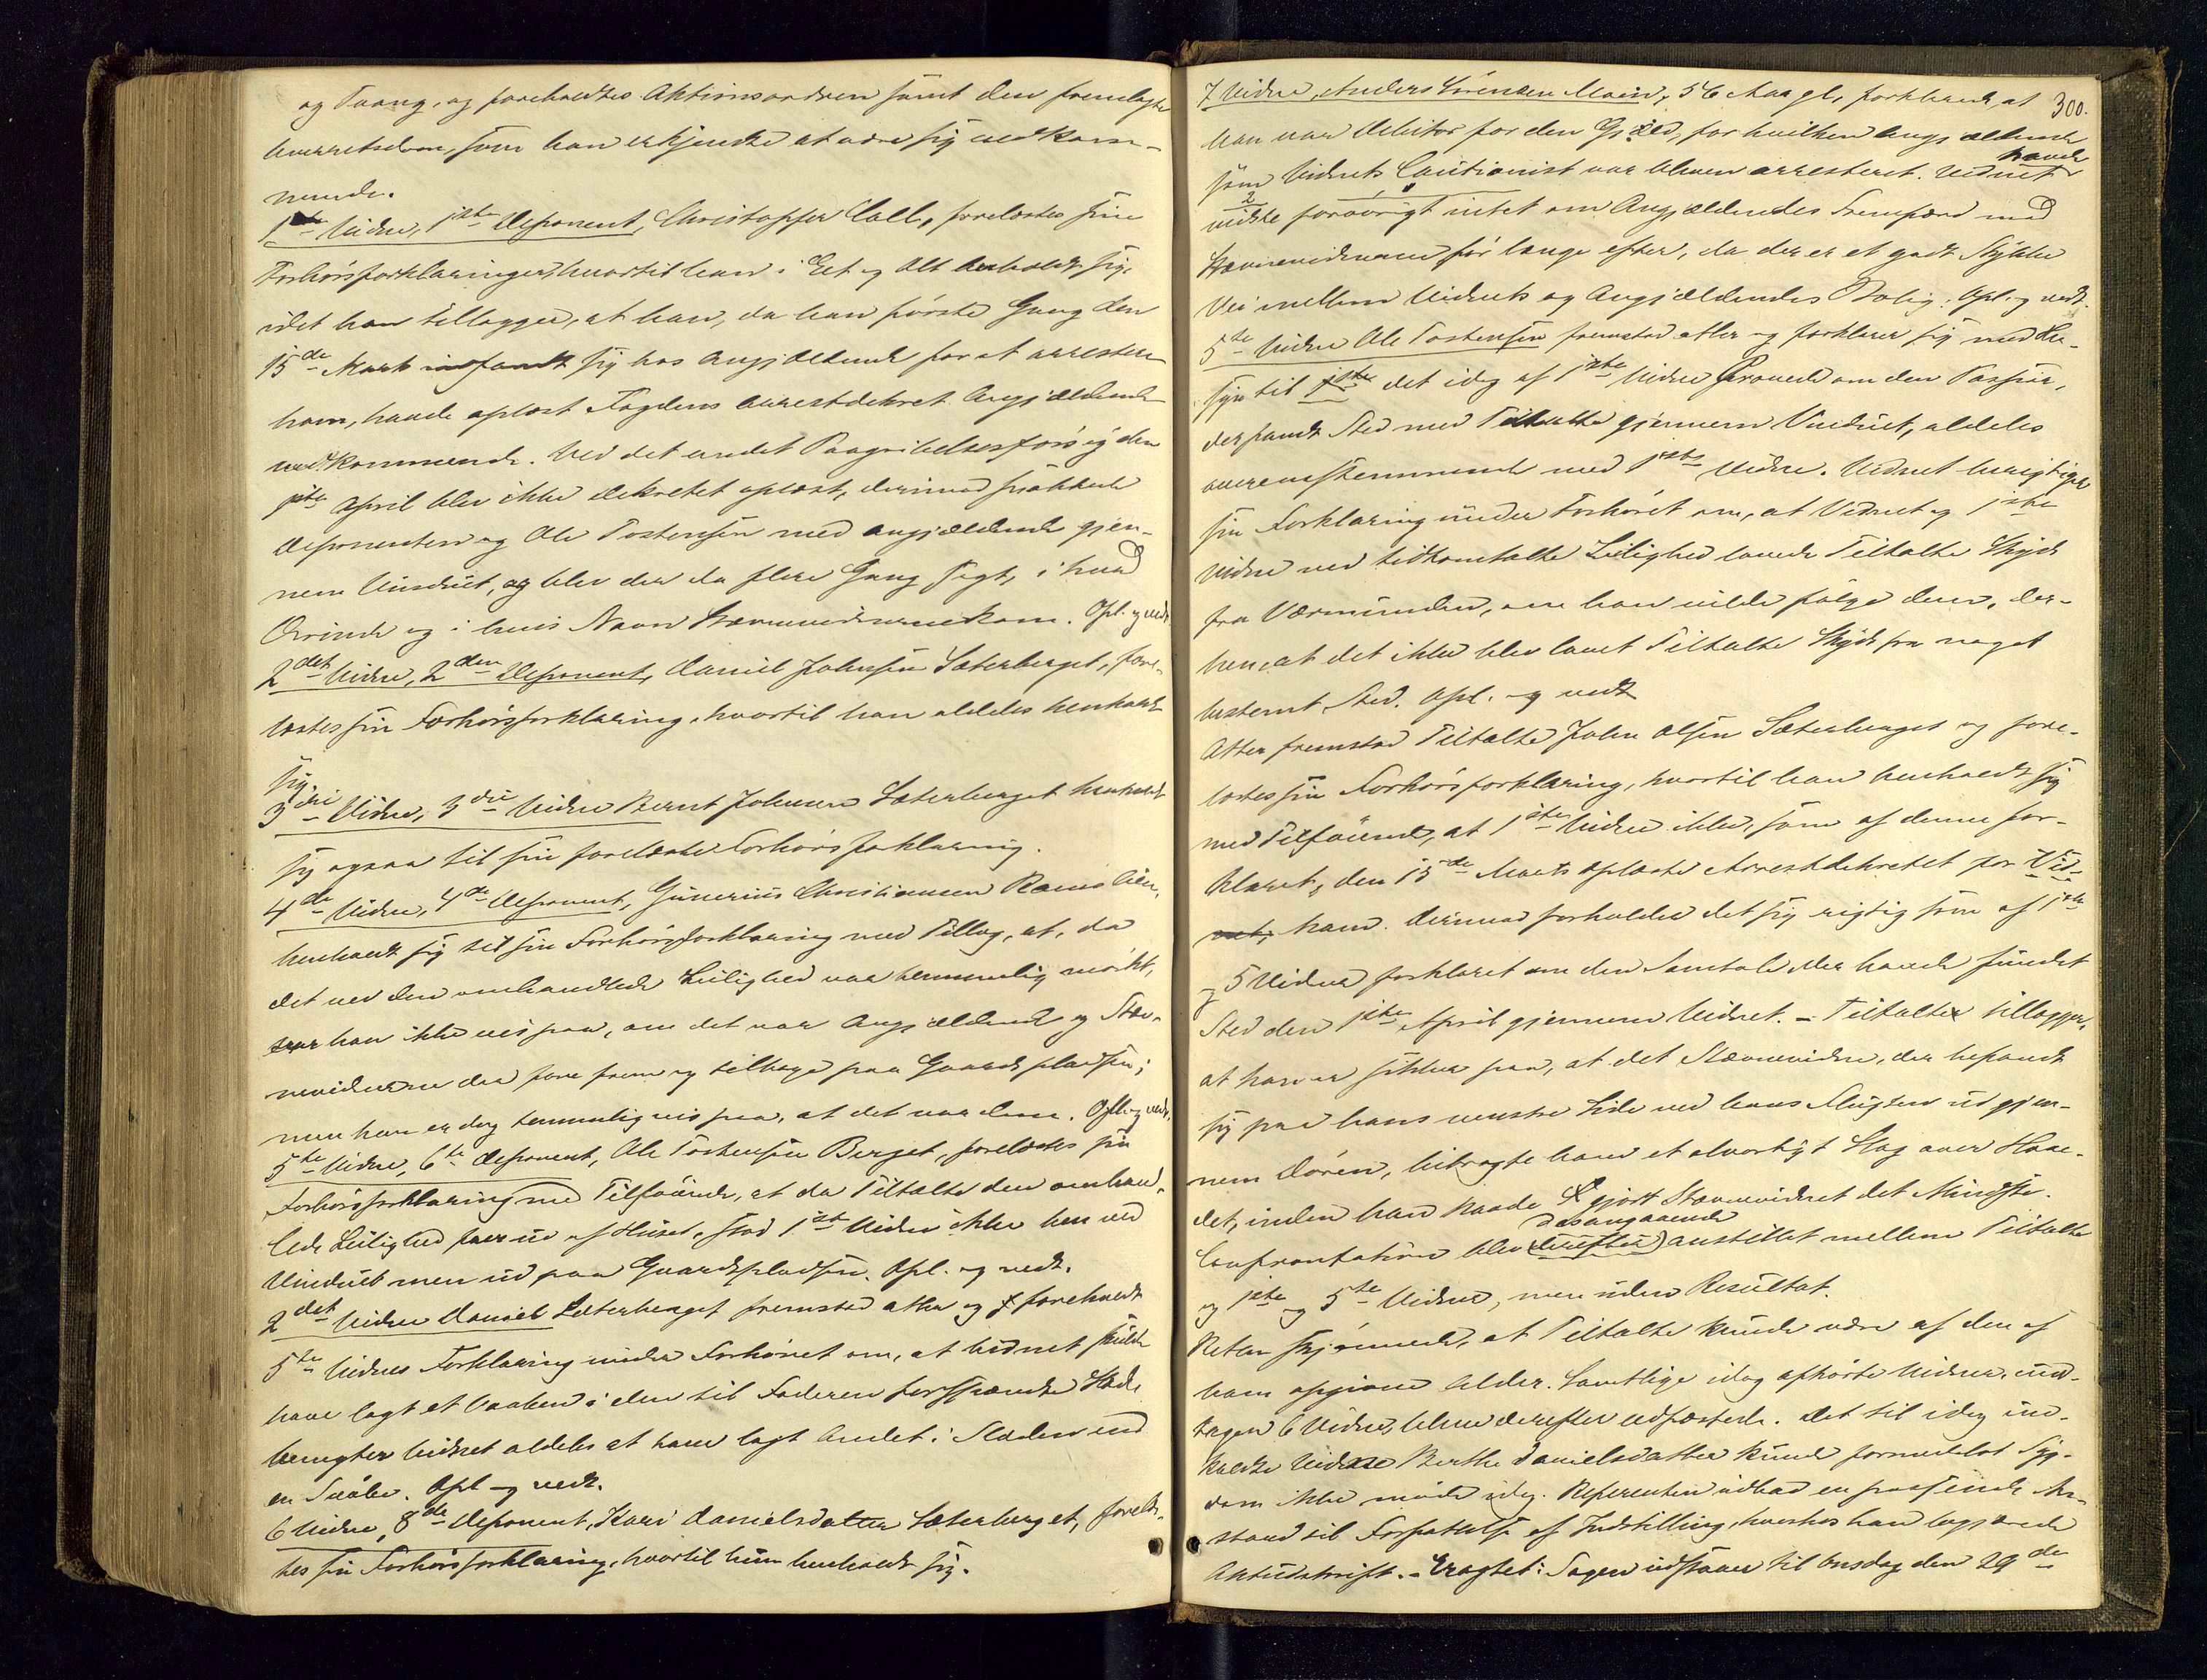 og Tvang, og foreholdtes Aktionsordren samt den fremlagte
hvorretsdom, som han erkjendte at være sig vedkom-
mende.
1ste Vidne, 1ste Deponent, Christopher Coll, forelæstes sin
Forhørsforklaringer, hvortil han i Et og Alt henholdt sig,
idet han tillægger, at han, da han første Gang den
15de Marts indfandt sig hos Angjældende for at arrestere
ham, havde oplæst Fogdens Arrestdekret Angjældende
vedkommende. Ved det andet Paagribelsesforsøg den
1ste April blev ikke Dekretet oplæst, derimod snakkede
Deponenten og Ole Tostensen med Angjældende gjen-
nem Vinduet, og blev der da flere Gang sagt, i hvad
Ærinde og i hvis Navn Stævnevidnerne kom. Opl. og vedt.
2det Vidne, 2den Deponent, Daniel Johnsen Sæterberget, fore-
læstes sin Forhørsforklaring, hvortil han aldeles henholdt
sig.
3die Vidne, 3die Vidne Bernt Johnsen Sæterberget henholdt
sig ogsaa til sin forelæste Forhørsforklaring.
4de Vidne, 4de Deponent, Gunerius Christiansen
henholdt sig til sin Forhørsforklaring med Tillæg, at, da
det ved den omhandlede Leilighed var temmelig mørkt,
han ikke vis paa, om det var Angjældende og Stæv-
nevidnerne der fore frem og tilbage paa Gaardspladsen;
men han er dog temmelig vis paa, at det var dem. Opl. og vedt.
5te Vidne, 6te Deponent, Ole Tostensen Berget, forelæstes sin
Forhørsforklaring med Tilføiende, at da Tiltalte den omhand-
lede Leilighed foer ud af Huset, stod 1ste Vidne ikke hen ved
Vinduet men ud paa Gaardspladsen. Opl. og vedt.
2det Vidne Daniel Sæterberget fremstod atter og foreholdt
5te Vidnes Forklaring under Forhøret om, at Vidnet skulde
have lagt et Vaaben i den til Faderen forspændte Slæde
benægter Vidnet aldeles at have lagt Andet i Slæden end
en Svøbe. Opl og vedt.
6 Vidne, 8de Deponent, Kari Danielsdatter Sæterberget, forelæs-
tes sin Forhørsforklaring, hvortil hun henholdt sig.
300.
7 Vidne, Anders Sørensen Moen, 56 Aar gl, forklarede, at
han var Debitor for den Gjæld, for hvilken Angjældende
som Vidnets Cautionist var bleven arresteret. Vidnet havde
vidste forøvrigt intet om Angjældendes Fremfærd mod
Stævnevidnerne før længe efter, da der er et godt Stykke
Vei mellem Vidnets og Angjældendes Bolig. Opl. og vedt.
5te Vidne Ole Tostensen fremstod atter og forklarer sig med Hen-
syn til det idag af 1ste Vidne Provede om den Passiar,
der fandt Sted med Tiltalte gjennem Vinduet, aldeles
overensstemmende med 1ste Vidne. Vidnet berigtiger
sin Forklaring under Forhøret om, at Vidnet og 1ste
Vidne ved sidstomtalte Leilighed lovede Tiltalte Skyds
fra Værmunden, om han vilde følge dem, der-
hen, at det ikke blev lovet Tiltalte Skyds fra noget
bestemt Sted. Opl. og vedt
Atter fremstod Tiltalte John Olsen Sæterberget og fore-
læstes sin Forhørsforklaring, hvortil han henholdt sig
med Tilføiende, at 1ste Vidne ikke, som af denne for-
klaret, den 15de Marts oplæste Arrestdekretet for Vid-
net, ham. Derimod forholder det sig rigtig som af 1ste
og 5 Vidne forklaret om den Samtale der havde fundet
Sted den 1ste April gjennem Vidnet. - Tiltalte tillægger,
at han er sikker paa, at det Stævnevidne, der befandt
sig paa hans venstre Side ved hans Flugten ud gjen-
nem Døren, bibragte ham et alvorligt Slag over Hove-
det, inden han havde gjort Stævnevidnet det Mindste.
Confrontation blev (derefter) desangaaende anstillet mellem Tiltalte
og 1ste og 5te Vidne, men uden Resultat.
Retten skjønnede, at Tiltalte kunde være af den af
ham opgivne Alder. Samtlige idag afhørte Vidner, und-
tagen 6 Vidne, bleve derefter edfæstede. Det til idag ind-
kaldte Vidne Berthe Danielsdatter kunde formedelst Syg-
dom ikke møde idag. Referenten udbad en passende An-
stand til Forfattelse af Indstilling, hvorhos han begjærede
Aktudskrift. - Eragtet: Sagen udstaaer til Onsdag den 29de